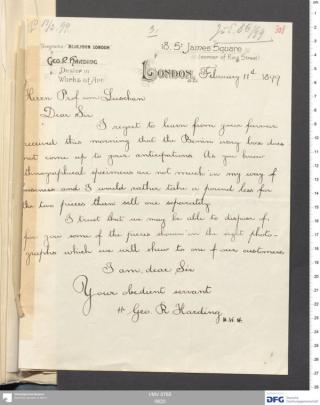 Telegrams: BLUEJOHN LONDON
18, St James Square
(corner of King Street)
Geo. R. Harding
Dealer in
Works of Art
London, February 11th 1899
Herrn Prof von Luschan
Dear Sir
I regret to learn from your favour
received this morning that the Benin ivory box does
not come up to your anticipations. As you know
ethnographical specimens are not much in my way of
business and I would rather take a pound less for
the two pieces than sell one separately
I trust that we may be able to dispose of
for you some of the pieces shown in the eight photo-
graphs which we will show to one of our customers
I am, dear Sir
Your obedient servant
Geo. R Harding
DFG